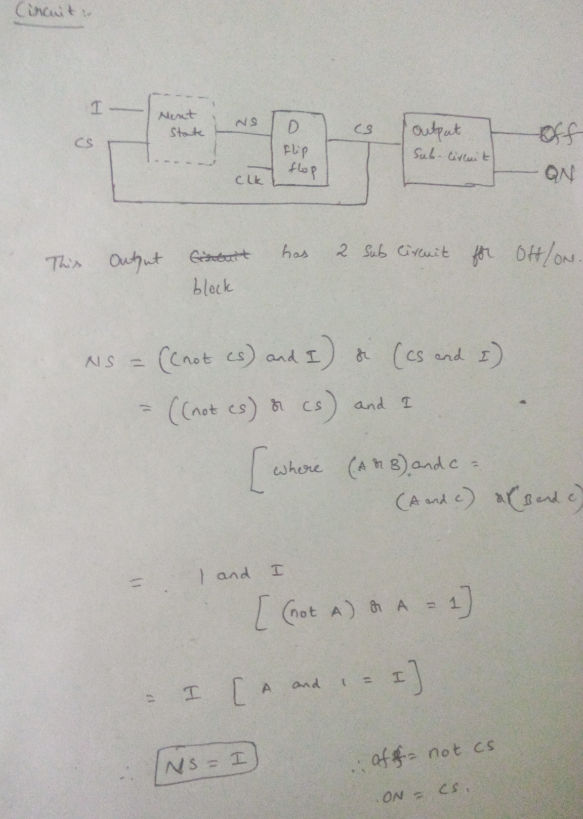 Circuit :-
I
CS
Next State
NS
D flip flop
Clk
CS
Output Sub-circuit
Off
ON
This Output Circuit has 2 Sub Circuit for Off/ON.
block
NS = ((not CS) and I) or (CS and I)
= ((not CS) or CS) and I
[where (A or B) and C =
(A and C) or (B and C)
= 1 and I
[(not A) or A = 1]
= I [A and 1 = I]
∴ NS = I
∴ Off = not CS
ON = CS.